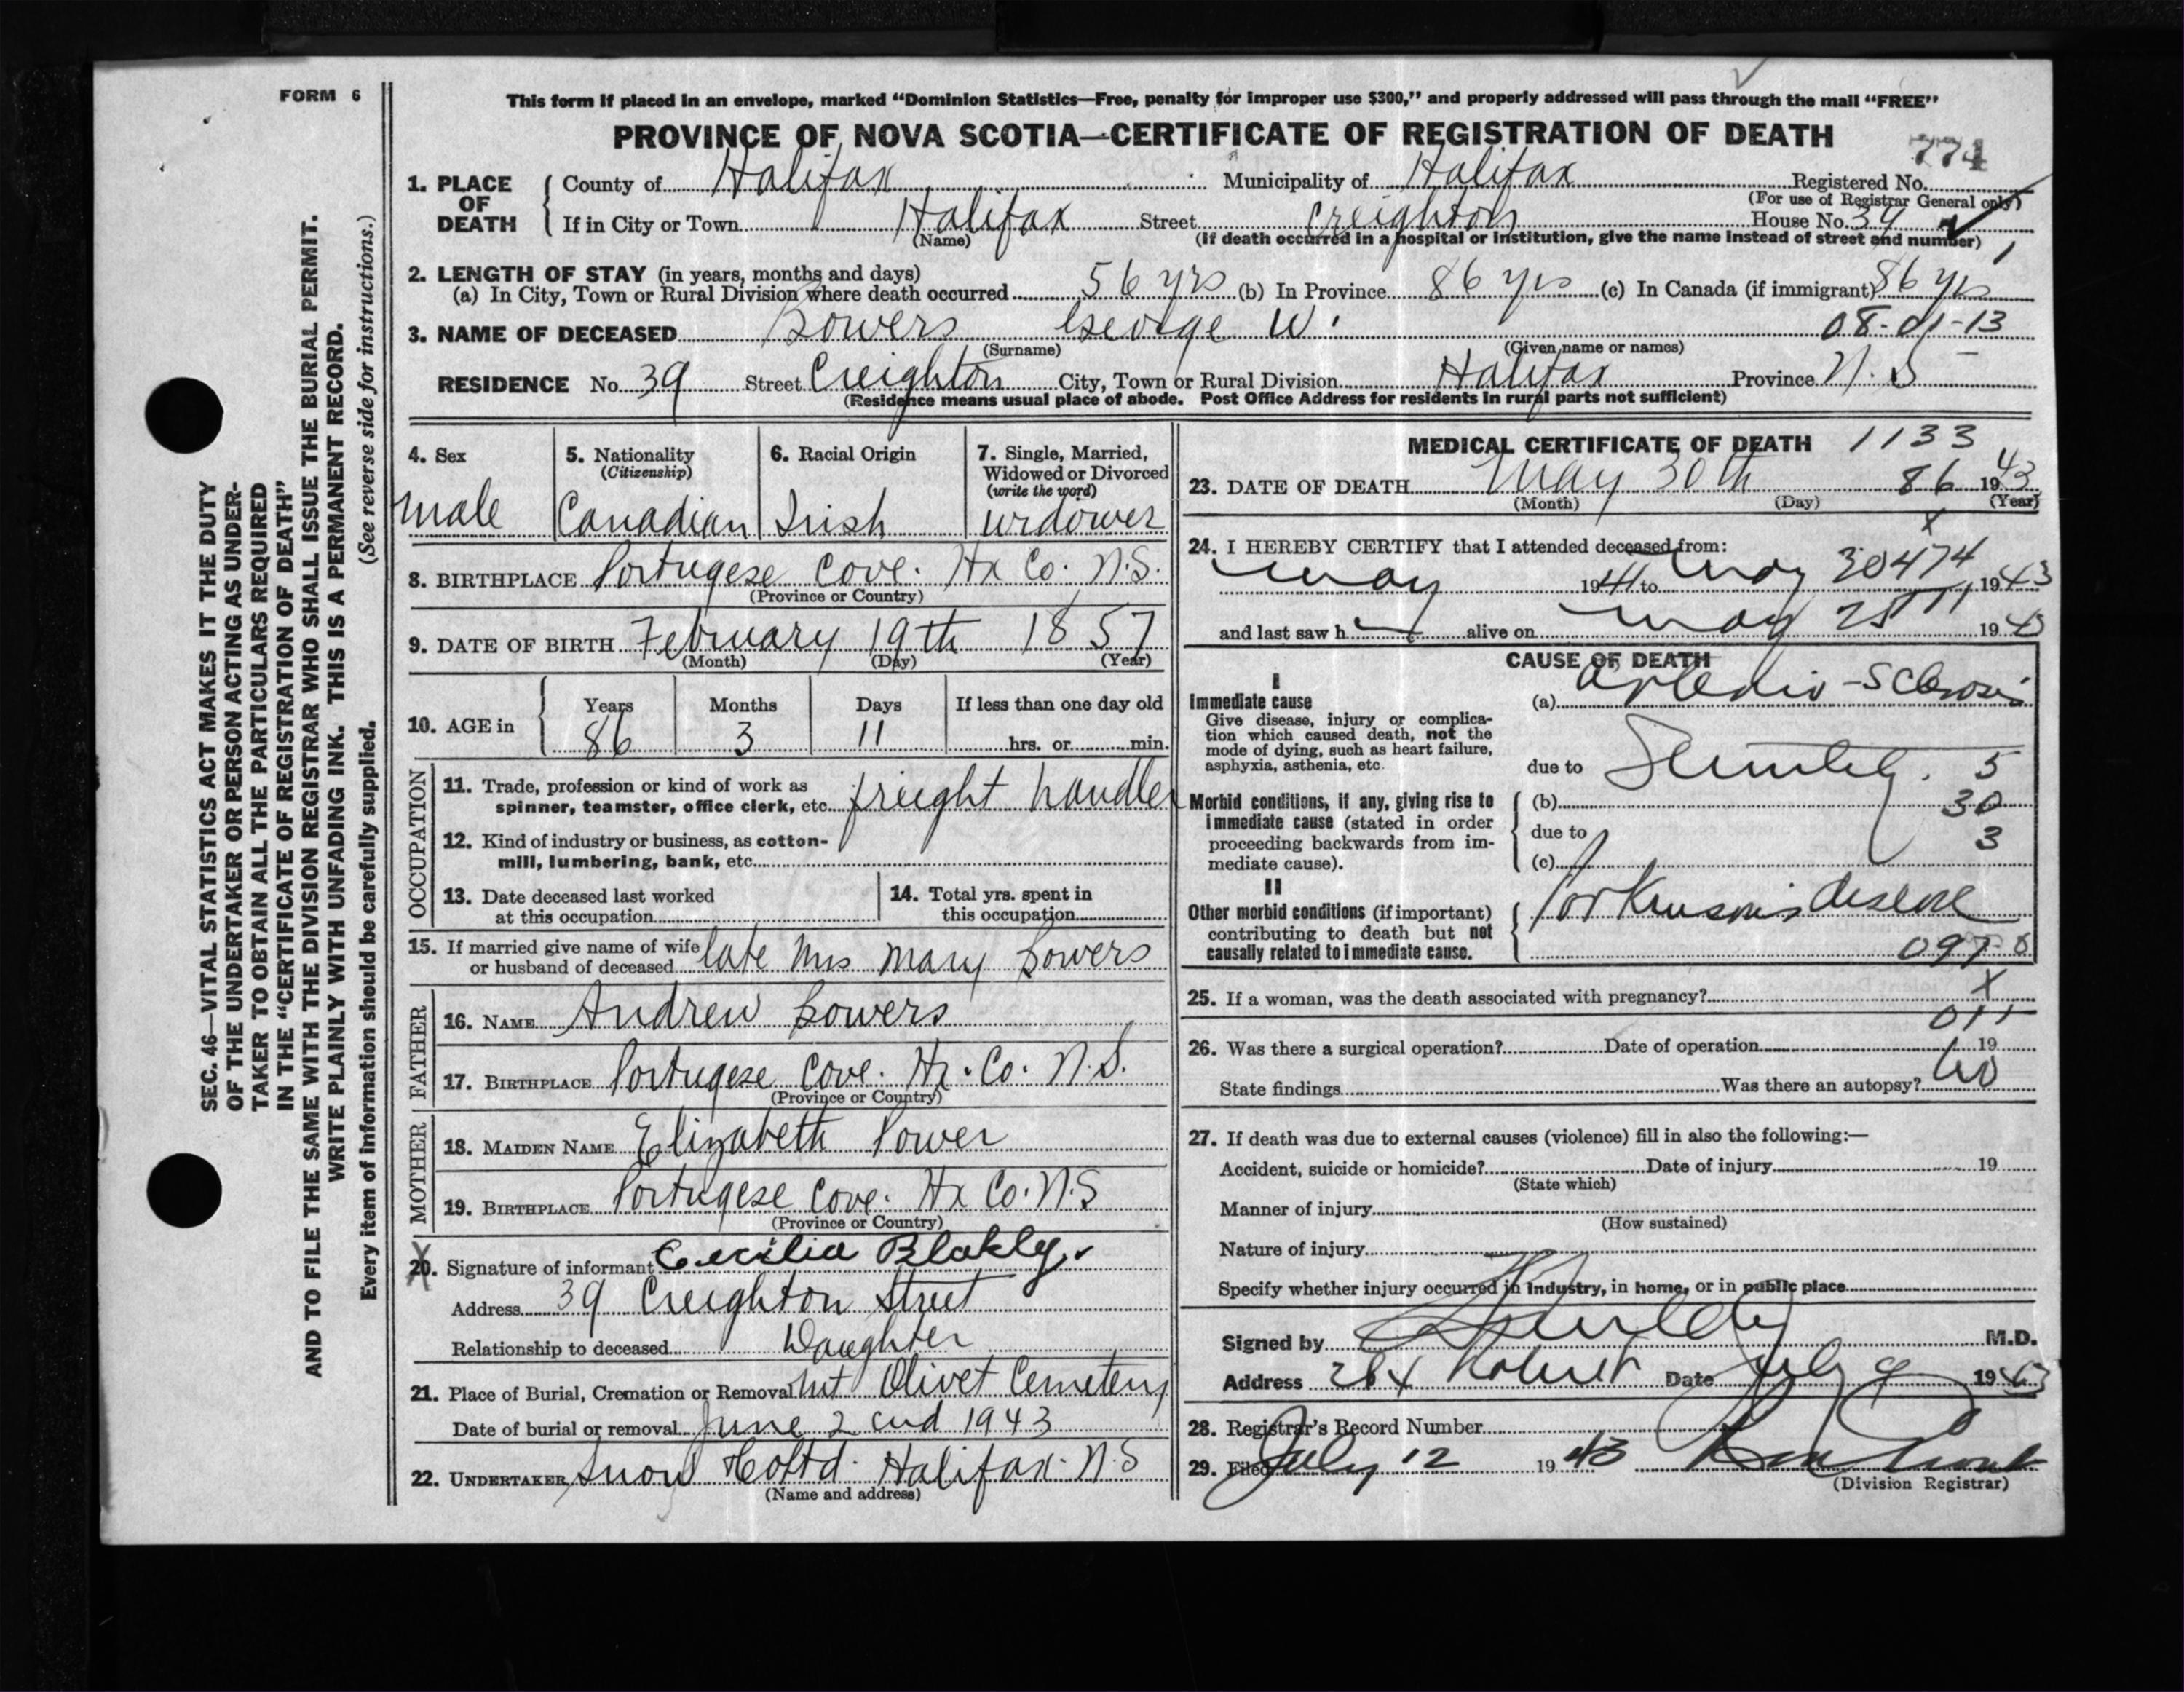 FORM 6
This form if placed in an envelope, marked "Dominion Statistics—Free, penalty for improper use $300," and properly addressed will pass through the mail "FREE"
PROVINCE OF NOVA SCOTIA—CERTIFICATE OF REGISTRATION OF DEATH
774
1. PLACE OF DEATH
County of Halifax Municipality of Halifax Registered No.
(For use of Registrar General only)
If in City or Town Halifax Street Creighton House No. 39
(Name) (If death occurred in a hospital or institution, give the name instead of street and number)
2. LENGTH OF STAY (in years, months and days)
(a) In City, Town or Rural Division where death occurred 56 yrs (b) In Province 86 yrs (c) In Canada (if immigrant) 86 yrs
3. NAME OF DECEASED Bowers George W. 08-01-13
(Surname) (Given name or names)
RESIDENCE No. 39 Street Creighton City, Town or Rural Division Halifax Province N.S
(Residence means usual place of abode. Post Office Address for residents in rural parts not sufficient)
4. Sex 5. Nationality (Citizenship) 6. Racial Origin 7. Single, Married, Widowed or Divorced (write the word)
male Canadian Irish widower
8. BIRTHPLACE Portugese Cove. Hx Co. N.S.
(Province or Country)
9. DATE OF BIRTH February 19th 1857
(Month) (Day) (Year)
10. AGE in Years Months Days If less than one day old
86 3 11 hrs. or min.
OCCUPATION
11. Trade, profession or kind of work as
spinner, teamster, office clerk, etc. freight handler
12. Kind of industry or business, as cotton-
mill, lumbering, bank, etc.
13. Date deceased last worked
at this occupation
14. Total yrs. spent in
this occupation
15. If married give name of wife
or husband of deceased late Mrs Mary Bowers
FATHER
16. NAME Andrew Bowers
17. BIRTHPLACE Portugese Cove. Hx. Co. N.S.
(Province or Country)
MOTHER
18. MAIDEN NAME Elizabeth Power
19. BIRTHPLACE Portugese Cove. Hx Co. N.S
(Province or Country)
20. Signature of informant Cecilia Blakly
Address 39 Creighton Street
Relationship to deceased Daughter
21. Place of Burial, Cremation or Removal Mt Olivet Cemetery
Date of burial or removal June 2 1943
22. UNDERTAKER Snow Co Ltd. Halifax. N.S
(Name and address)
MEDICAL CERTIFICATE OF DEATH 1133
23. DATE OF DEATH May 30th 86 1943
(Month) (Day) (Year)
24. I HEREBY CERTIFY that I attended deceased from:
May 1941 to May 30 474 1943
and last saw h alive on May 25 1943
CAUSE OF DEATH
I
Immediate cause
Give disease, injury or complica-
tion which caused death, not the
mode of dying, such as heart failure,
asphyxia, asthenia, etc.
(a) Arterio-Sclerosis
due to Senility. 5
Morbid conditions, if any, giving rise to
immediate cause (stated in order
proceeding backwards from im-
mediate cause).
(b) 30
due to 3
(c)
II
Other morbid conditions (if important)
contributing to death but not
causally related to immediate cause.
Parkinson's disease
25. If a woman, was the death associated with pregnancy? X
011
26. Was there a surgical operation? Date of operation 19
State findings Was there an autopsy? no
27. If death was due to external causes (violence) fill in also the following:—
Accident, suicide or homicide? Date of injury 19
(State which)
Manner of injury
(How sustained)
Nature of injury
Specify whether injury occurred in industry, in home, or in public place
Signed by M.D.
Address Date July 9 1943
28. Registrar's Record Number
29. Filed July 12 1943
(Division Registrar)
SEC. 46—VITAL STATISTICS ACT MAKES IT THE DUTY
OF THE UNDERTAKER OR PERSON ACTING AS UNDER-
TAKER TO OBTAIN ALL THE PARTICULARS REQUIRED
IN THE "CERTIFICATE OF REGISTRATION OF DEATH"
AND TO FILE THE SAME WITH THE DIVISION REGISTRAR WHO SHALL ISSUE THE BURIAL PERMIT.
WRITE PLAINLY WITH UNFADING INK. THIS IS A PERMANENT RECORD.
Every item of information should be carefully supplied. (See reverse side for instructions.)